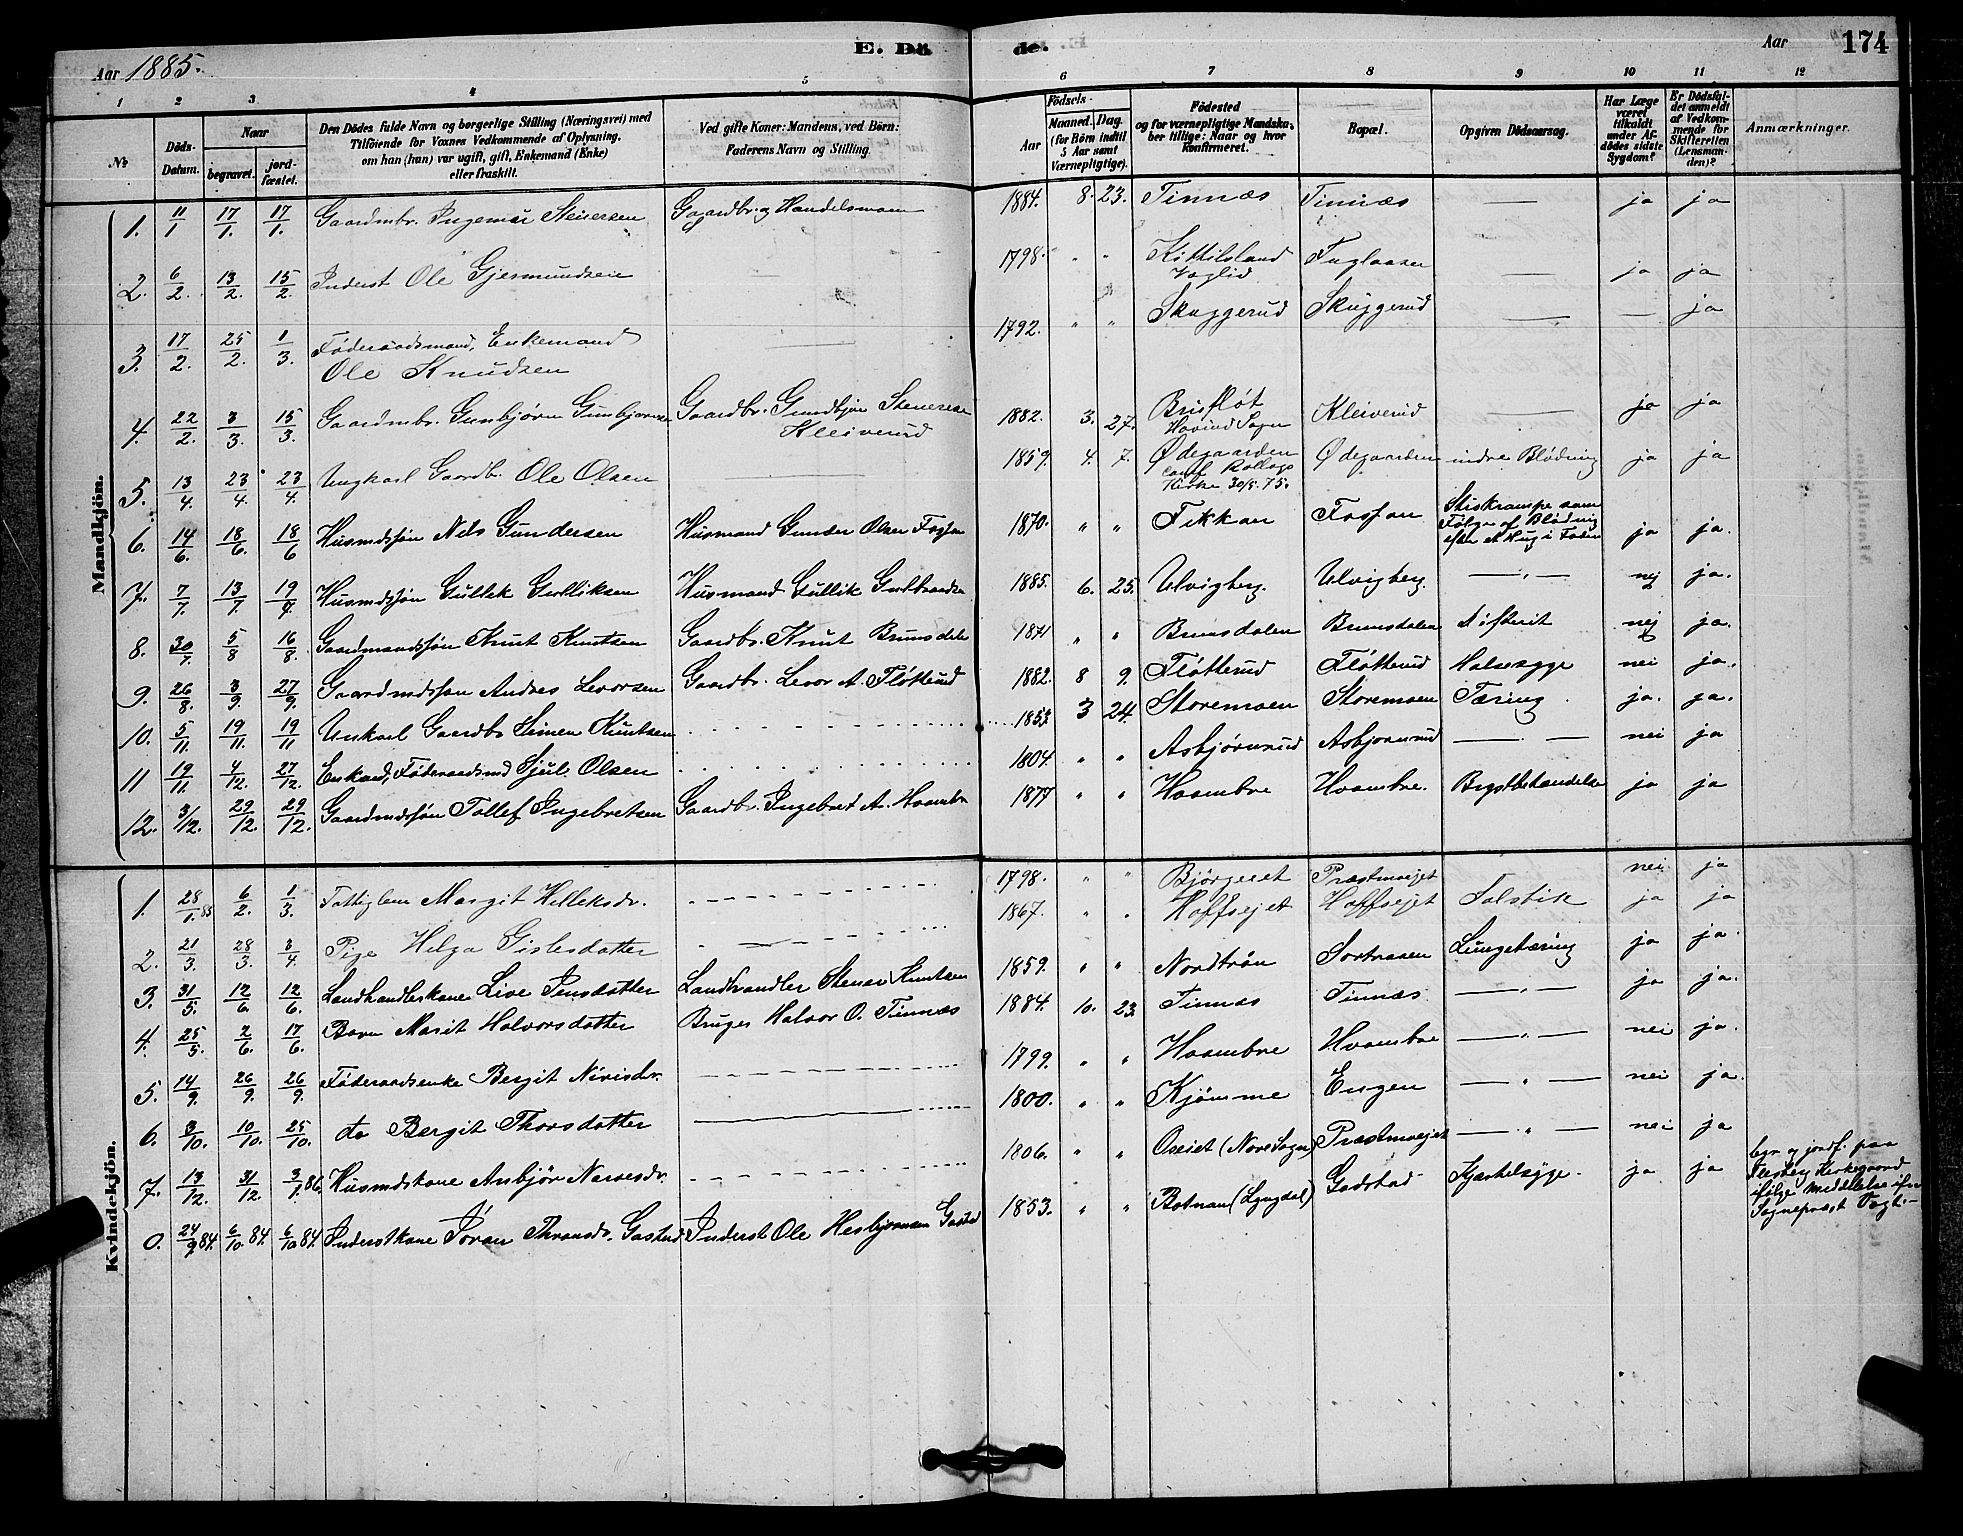 Aar 1885. E. Dö de. Aar 174
1 2 3 4 5 6 7 8 9 10 11 12
No
Døds-Datum.
Naar
begravet.
jordfæstet.
Den Dödes fulde Navn og borgerlige Stilling (Næringsvei) med
Tilföiende for Voxnes Vedkommende af Oplysning,
om han (hun) var ugift, gift, Enkemand (Enke)
eller fraskilt.
Ved gifte Koner: Mandens, ved Börn:
Faderens Navn og Stilling.
Födsels-
Aar
Maaned. Dag.
(for Börn indtil
5 Aar samt
Værnepligtige).
Födested
og for værnepligtige Mandska-
ber tillige: Naar og hvor
konfirmeret.
Bopæl.
Opgiven Dödsaarsag.
Har Læge
været
tilkaldt
under Af-
dödes sidste
Sygdom?
Er Dödsfal-
det anmeldt
af Vedkom-
mende for
Skifteretten
(Lensman-
den)?
Anmærkninger.
Mandkjön.
1. 11/1 17/1. 17/1. Gaardmbr. Ingemar Steinersen Gaardbr. og Handelsmann 1884. 8. 23. Tinnæs Tinnæs — ja ja
2. 6/2. 13/2. 15/2. Inderst Ole Gjermundsen — 1798. " " Kittilsland Fuglaasen — ja ja
Voglid
3. 17/2. 25/2. 1/3. Föderaadsmand, Enkemand — 1792. " " Skuggerud Skuggerud — — ja
Ole Knudsen
4. 22/2. 3/3. 15/3. Gaardmbr. Gunbjörn Gunbjørnsen Gaardbr. Gundbjørn Stenersen 1882. 3. 27. Brusløt Kleiverud — ja ja
Kleiverud Hovind Sogn
5. 13/4. 23/4. 23/4. Ungkarl Gaardb. Ole Olsen — 1859. 4. 7. Ødegaarden Ødegaarden indre Blødning ja ja
conf. Rollags
Kirke 30/5. 75.
6. 14/6. 18/6. 18/6 Husmdssøn Nils Gundersen Husmand Gunder Olsen Fosfon 1870. " " Fikkan Fosfon Stivkrampe som
Følge af Blødning
efter et Hug i Foden ja ja.
7. 7/7. 13/7. 19/7. Husmdssøn Gullek Gulliksen Husmand Gullik Guldbrandsen 1885. 6. 25. Ulvigberg. Ulvigberg. — " — nej ja.
8. 30/7. 5/8 16/8. Gaardmandssøn Knut Knutsen Gaardbr. Knut Brunsdalen 1871 " " Brunsdalen Brunsdalen Difterit nej ja.
9. 26/8. 3/9. 27/9. Gaardmdssøn Andres Levorsen Gaardbr. Levor A. Fløtterud 1882. 8 9. Fløtterud Fløtterud Halssyge nei ja.
10. 5/11. 19/11. 19/11 Unkarl Gaardbr Simen Knutsen 1853 3 24. Storemoen Storemoen Tæring ja. ja.
11 19/11. 4/12. 27/12. Enkmd, Føderaadsmd Sjul Olsen 1804. " " Asbjørnrud Asbjørnrud — " — nei ja
12. 3/12. 29/12. 29/12. Gaardmdssøn Tollef Ingebretsen Gaardbr. Ingebret A. Hvambre 1877 " " Hvambre Hvambre. Brystbetændelse ja ja
Kvindekjön.
1. 28/1. 85 6/2. 1/3. Fattiglem Margit Helleksdr. 1798. " " Bjørgeret Præstmoejet nei ja
2. 21/3. 28/3. 3/4. Pige Helga Gislesdatter 1867. " " Hoffsejet Hoffsejet Talstik ja ja
3. 31/5. 12/6. 12/6. Landhandlerskone Live Jensdatter Landhandler Stener Knutsen 1859. " " Nordtrøn Sortraaen Lungetæring ja ja.
4. 25/5. 2/6. 17/6. Barn Marit Halvorsdatter Bruger Halvor O. Tinnæs 1884. 10. 23 Tinnæs Tinnæs — " — ja ja.
5. 14/9. 26/9. 26/9. Føderaadsenke Bergit Nirisdr. 1799. " " Hvambre Hvambre — " — nei ja.
6. 3/10. 10/10. 25/10. do Bergit Thorsdatter 1800. " " Kjømme Engen — " — nei ja.
7. 13/12. 31/12. 3/1. 86. Husmdskone Asbjør Narvesdr. 1806. " " Oseiet (Nore Sogn) Præstmoejet — " — nei ja
0. 24/9 84. 6/10. 84. 6/10 84. Inderstkone Jøran Thronsdr. Gastad Inderst Ole Hesbjørnsen Gastad 1853. " " Botnan (Lyngdal) Gadstad Hjertesyge. ja ja
begr. og jordf. paa
Flesberg Kirkegaard
ifølge Meddelelse fra
Sognepræst Vogt. —